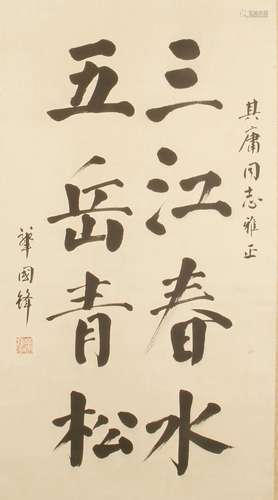 其庸同志雅正
三江春水
五岳青松
龚國鋒